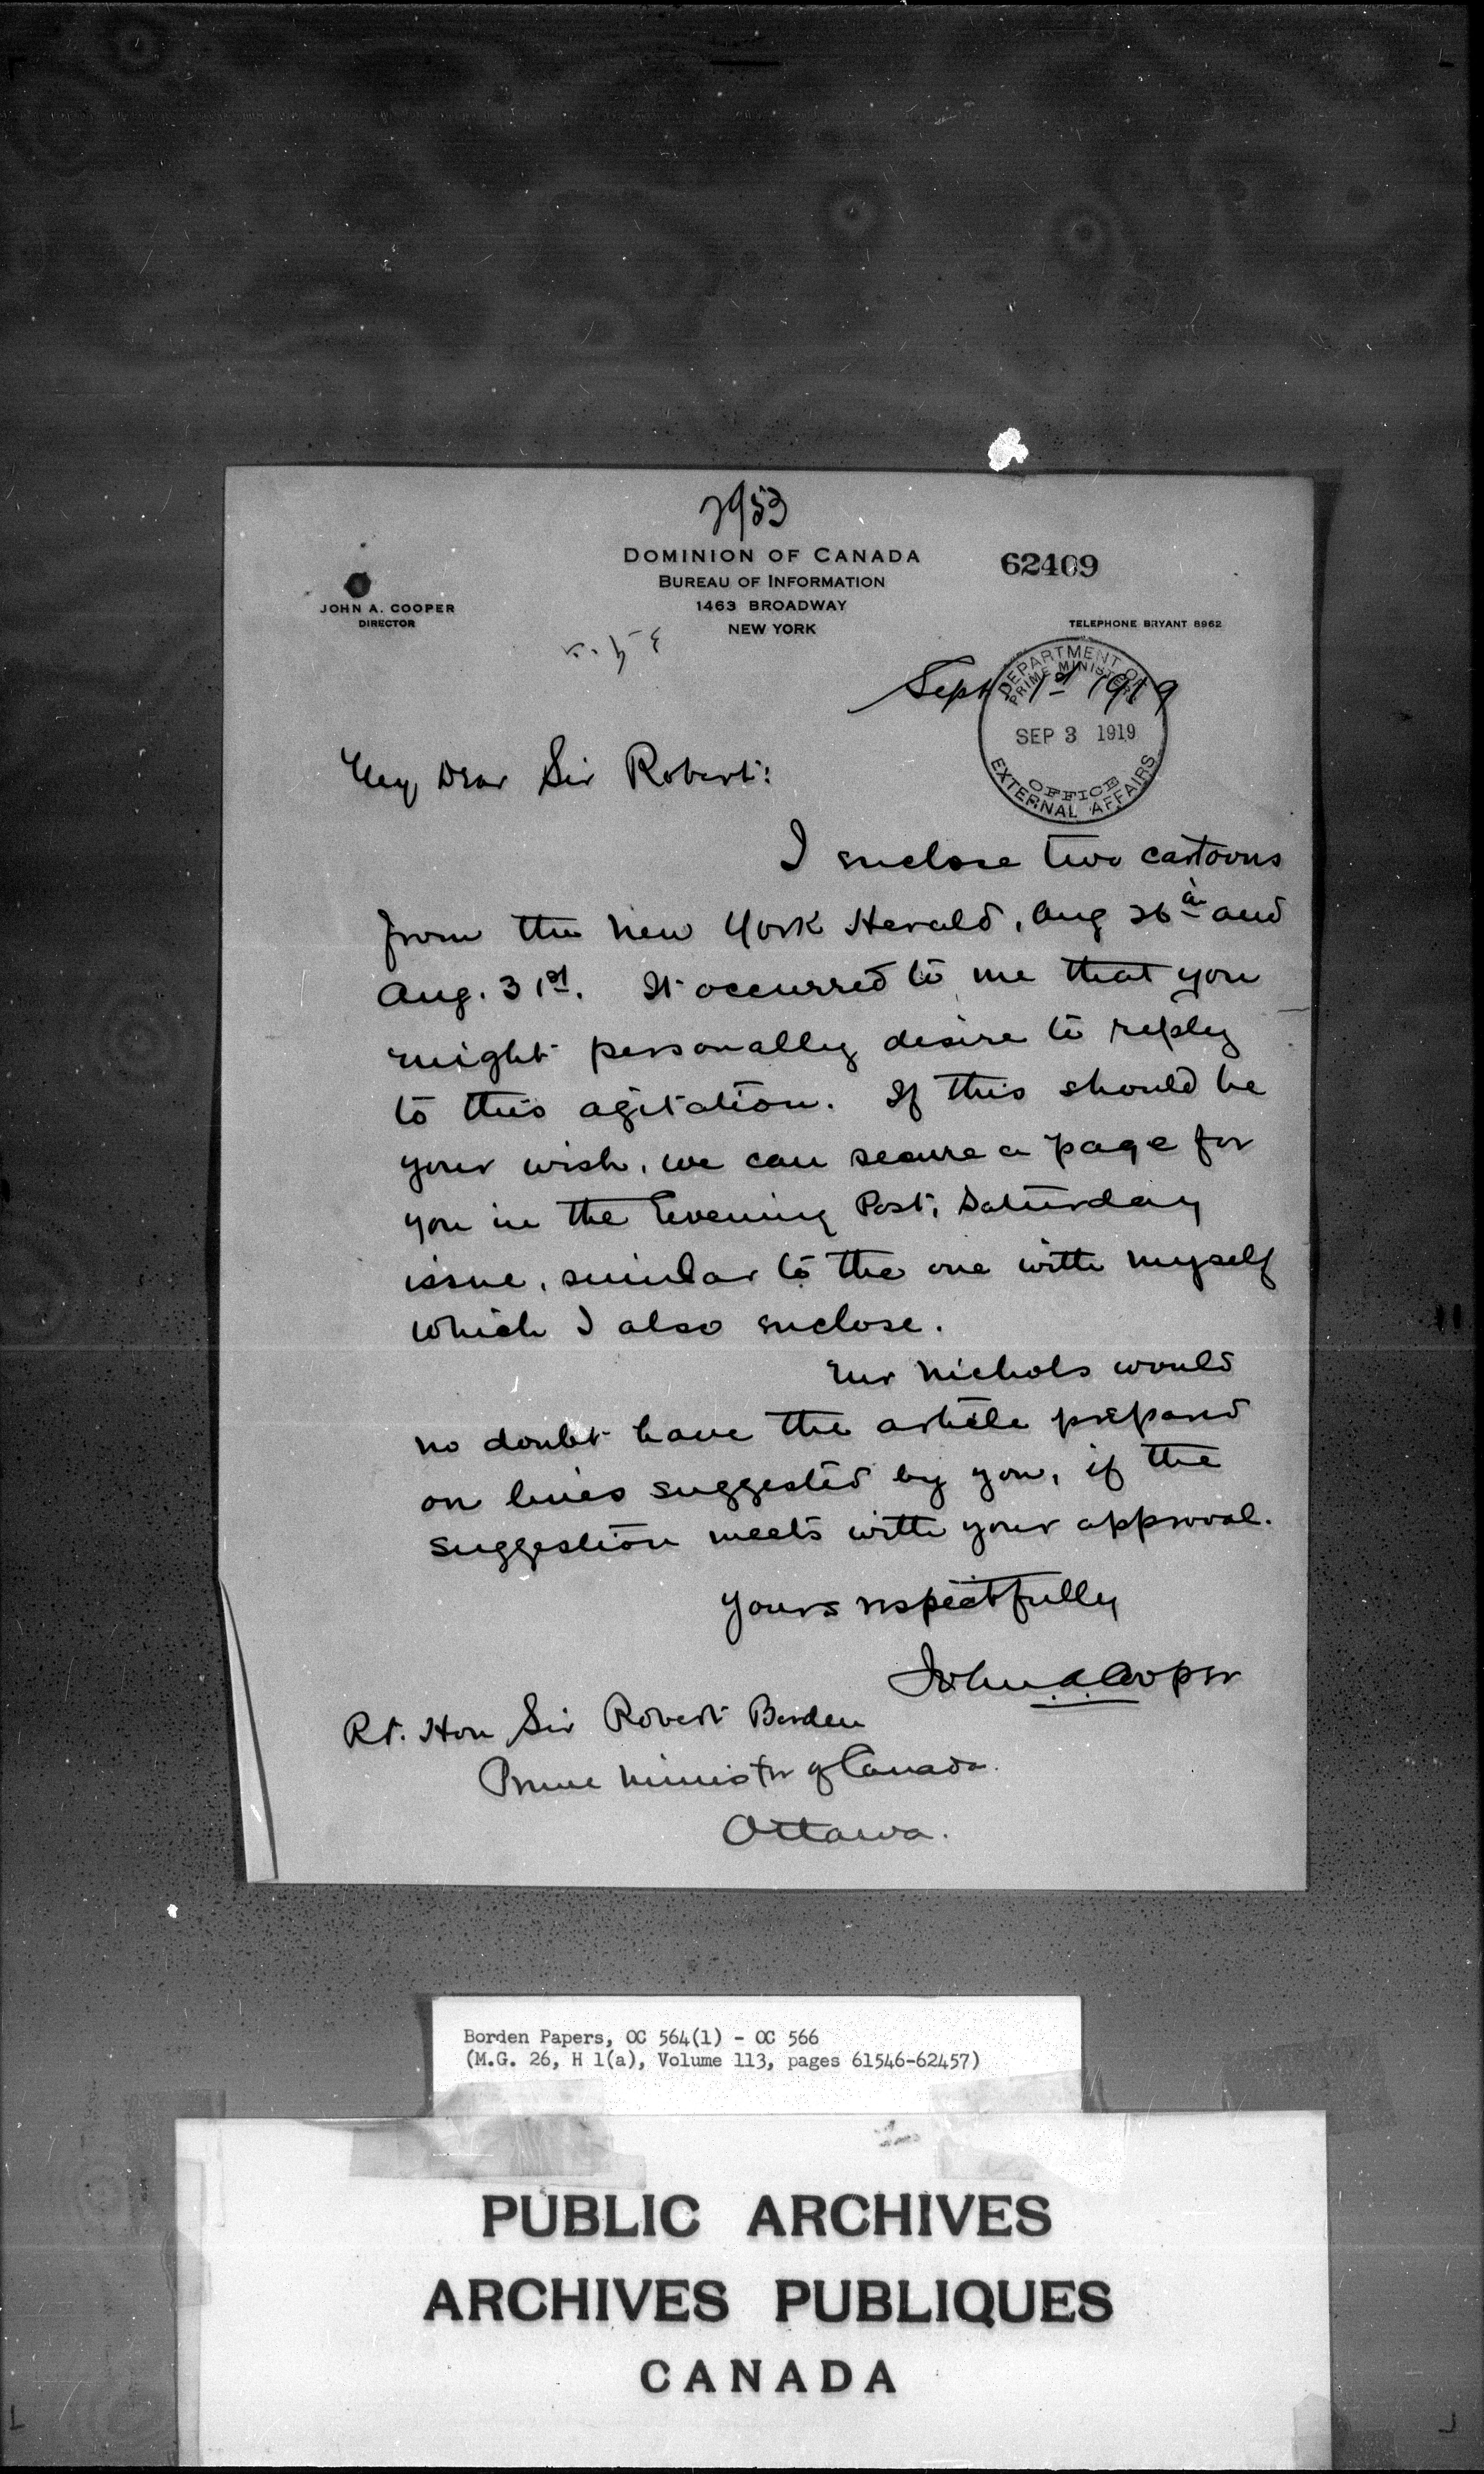 2953
DOMINION OF CANADA
62409
BUREAU OF INFORMATION
1463 BROADWAY
NEW YORK
JOHN A. COOPER
DIRECTOR
TELEPHONE BRYANT 8962
Sept 1st 1919
DEPARTMENT OF
PRIME MINISTER
SEP 3 1919
OFFICE
EXTERNAL AFFAIRS
My Dear Sir Robert:
I enclose two cartoons
from the New York Herald, Aug 26th and
Aug. 31st. It occurred to me that you
might personally desire to reply
to this agitation. If this should be
your wish, we can secure a page for
you in the Evening Post, Saturday
issue, similar to the one with myself
which I also enclose.
Mr Nichols would
no doubt have the article prepared
on lines suggested by you, if the
suggestion meets with your approval.
Yours respectfully
John A. Cooper
Rt. Hon Sir Robert Borden
Prime Minister of Canada.
Ottawa.
Borden Papers, OC 564(1) - OC 566
(M.G. 26, H 1(a), Volume 113, pages 61546-62457)
PUBLIC ARCHIVES
ARCHIVES PUBLIQUES
CANADA